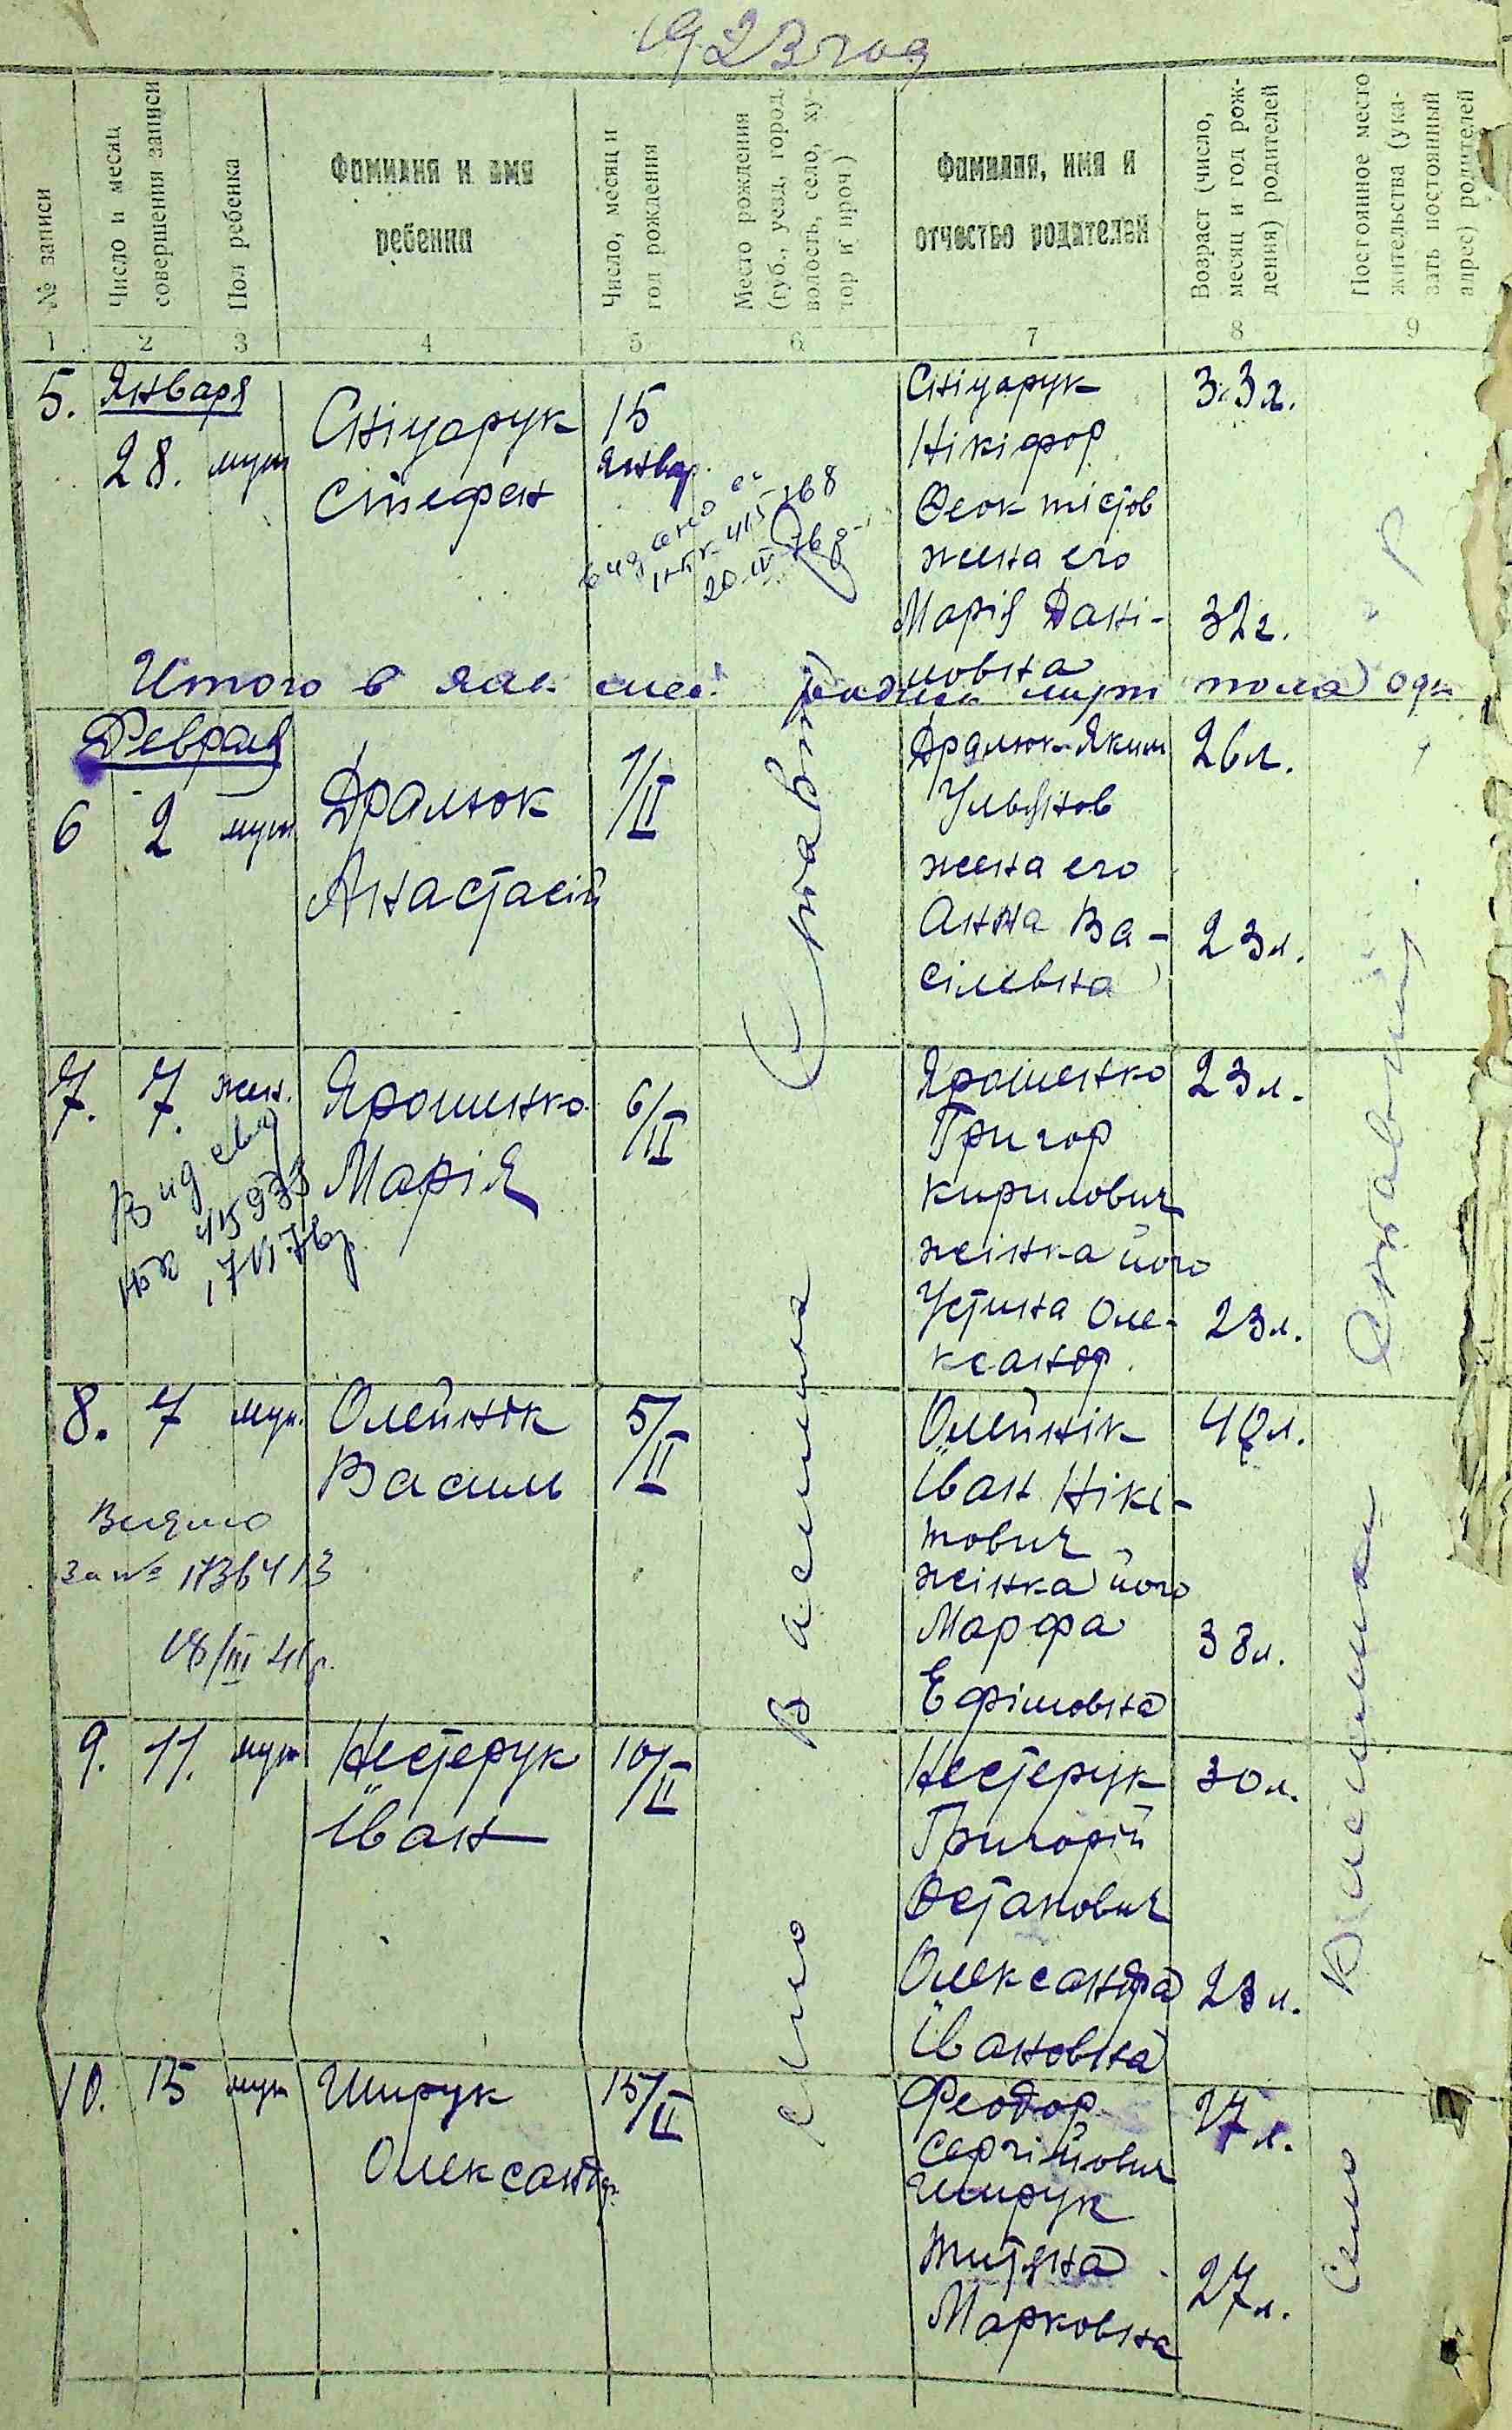 1923 год
№ записи
Число и месяц
совершения записи
Пол ребенка
Фамилия и имя
ребенка
Число, месяц и
год рождения
Место рождения
(губ., уезд, город,
волость, село, ху-
тор и проч)
Фамилия, имя и
отчество родителей
Возраст (число,
месяц и год рож-
дения) родителей
Постоянное место
жительства (ука-
зать постоянный
адрес) родителей
1 2 3 4 5 6 7 8 9
5. Января
28. муж
Сніцарук
Стефан
15
Январ.
Сніцарук
Нікіфор
Феоктістов
жена его
Марія Дані-
ловна
33л.
32г.
Итого в мес. пола
Февраля
6 2 муж
Дралюк
Анастасій
1/II
Дралюк Яким
Ульянов
жена его
Анна Ва-
сілевна
26л.
23л.
7. 7. жен.
Ярошенко
Марія
6/II
Ярошенко
Григор
Кирилович
жінка його
Устина Оле-
ксандр.
23л.
23л.
8. 7 муж.
Олейнік
Василь
5/II
Олейнік
Іван Нікі-
тович
жінка його
Марфа
Ефімовна
40л.
38л.
9. 11. муж
Нестерук
Іван
10/II
Нестерук
Григорій
Остапович
Олександра
Івановна
30л.
23л.
10. 15 муж
Шпирук
Олександр.
15/II
Феодор
Сергійович
Шпирук
Марковна
27л.
27л.
село
Село